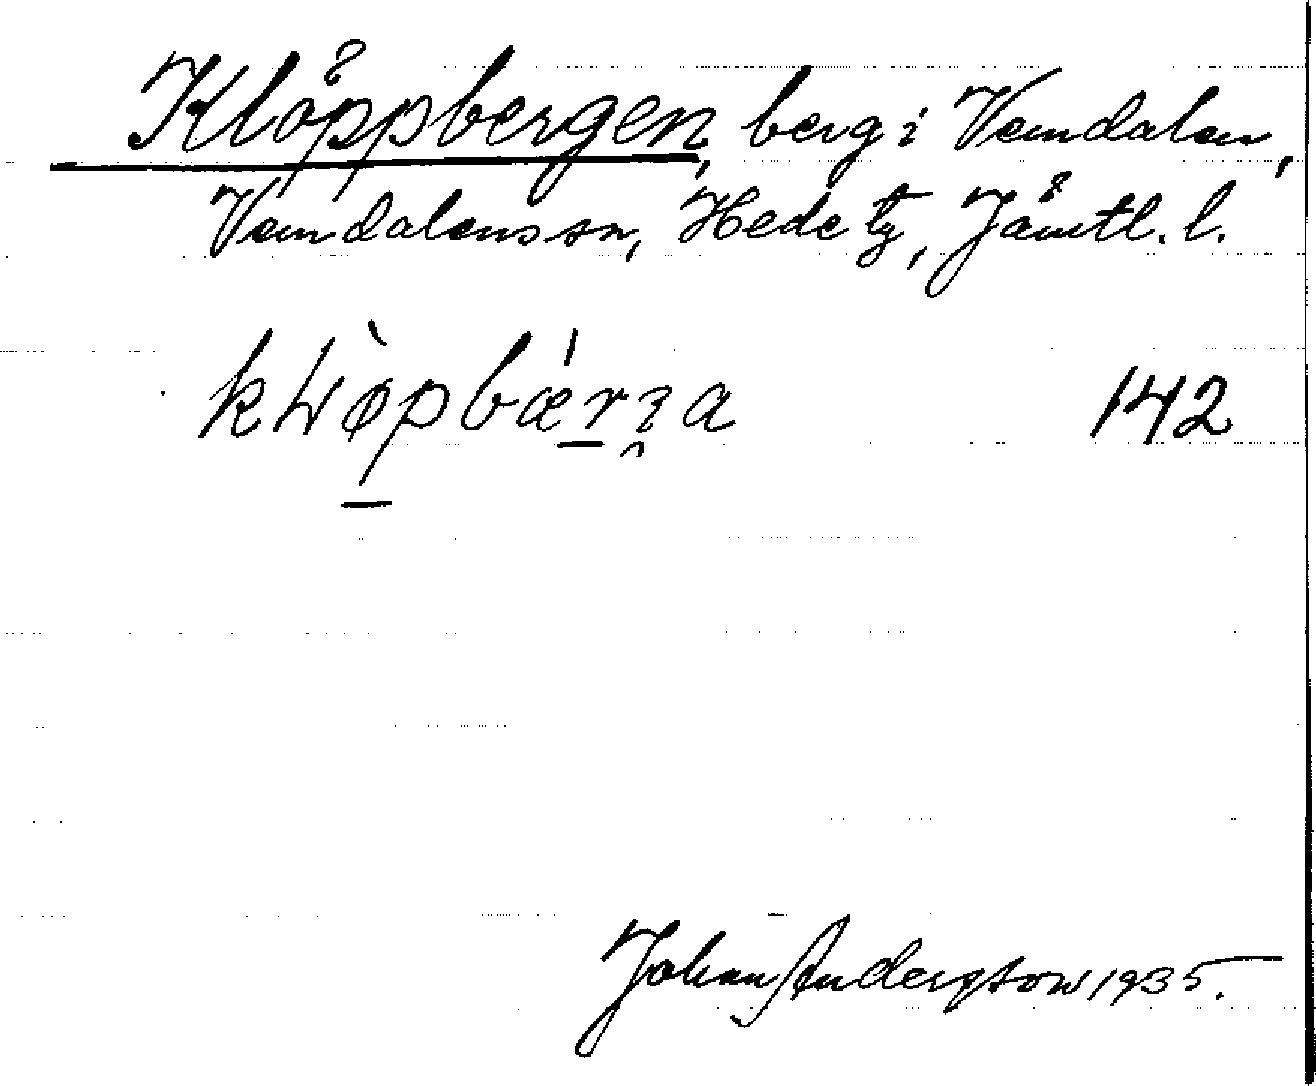 Klöppbergen, berg i Vemdalen,
Vemdalens sn, Hede tg, Jämtl. l.
142
Johan Andersson 1935.